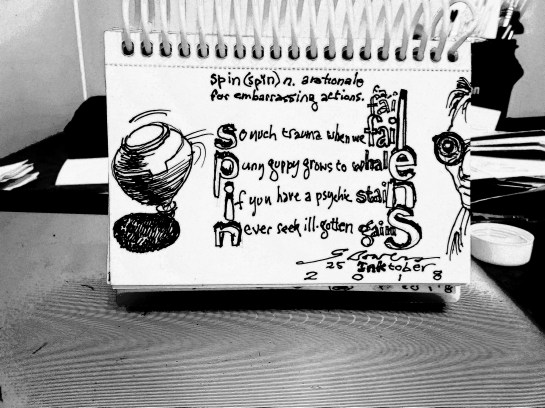 spin (spin) n. a rationale
for embarrassing actions.
So much trauma when we fail
puny guppy grows to whale
if you have a psychic stain
never seek ill-gotten gains
25 Inktober
2 0 1 8